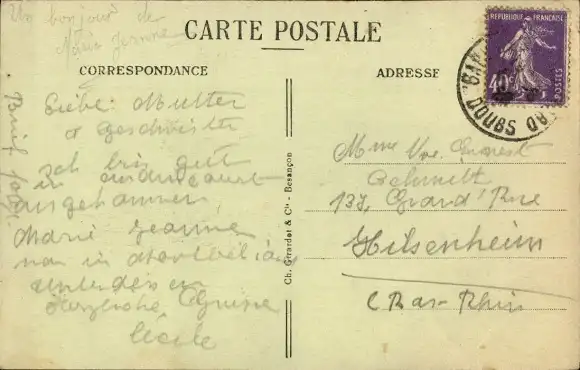 Un bonjour de
Marie Jeanne
CARTE POSTALE
CORRESPONDANCE
ADRESSE
REPUBLIQUE FRANÇAISE
40c
POSTES
DOUBS
Liebe Mutter
u Geschwister
Ich bin gut
in audincourt
angekommen
Marie Jeanne
war in
unterdessen
herzliche Grüsse
Cécile
Brief folgt
Ch. Girardot & Cie - Besançon
Mme Vve. Ernest
Schmitt
137, Grand'Rue
Hilsenheim
(Bas-Rhin